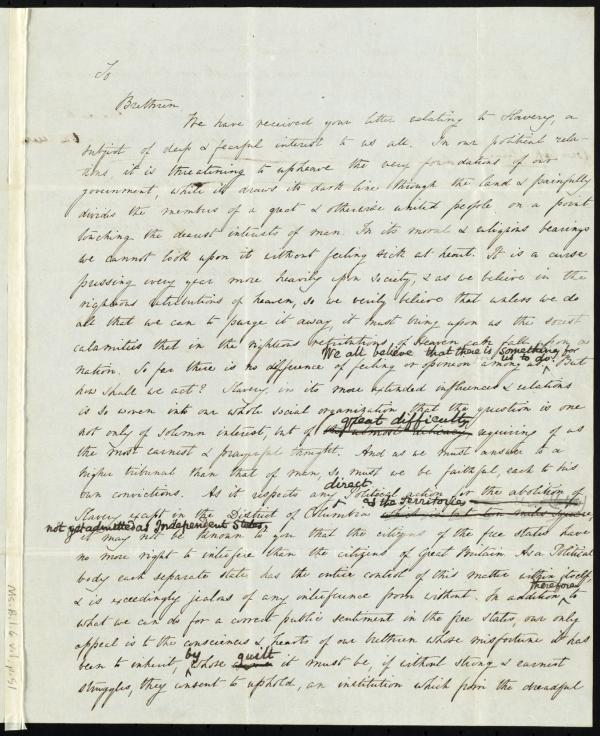 To
Brethren
We have received your letter relating to Slavery, a
subject of deep & fearful interest to us all. In our political rela-
tions, it is threatening to upheave the very foundations of our
government, while it draws its dark line through the land & painfully
divides the members of a great & otherwise united people on a point
touching the dearest interests of man. In its moral & religious bearings
we cannot look upon it without feeling sick at heart. It is a curse
pressing every year more heavily upon society, & as we believe in the
righteous retributions of heaven, so we verily believe that unless we do
all that we can to purge it away, it must bring upon us the sorest
calamities that in the righteous retributions of Heaven can fall upon a
We all believe that there is something for
us to do.
nation. So far there is no difference of feeling or opinion among us. But
how shall we act? Slavery, in its more extended influences & relations
is so woven into our whole social organization that the question is one
great difficulty
not only of solemn interest, but of the utmost delicacy requiring of us
the most earnest & prayerful thought. And as we must answer to a
higher tribunal than that of men, so must we be faithful, each to his
own convictions. As it respects any
direct
Political action for the abolition of
& the Territories
Slavery except in the District of Columbia
not yet admitted as Independent States,
it may not be known to you that the citizens of the free states have
no more right to interfere than the citizens of Great Britain. As a Political
body each separate state has the entire control of this matter within itself,
& is exceedingly jealous of any interference from without. In addition
therefore
to
what we can do for a correct public sentiment in the free States, our only
appeal is to the consciences & hearts of our brethren whose misfortune it has
been to inherit,
by
whose
guilt
it must be, if without strong & earnest
struggles, they consent to uphold, an institution which from the dreadful
Ms. B. 1. 6 v. 1, p. 51